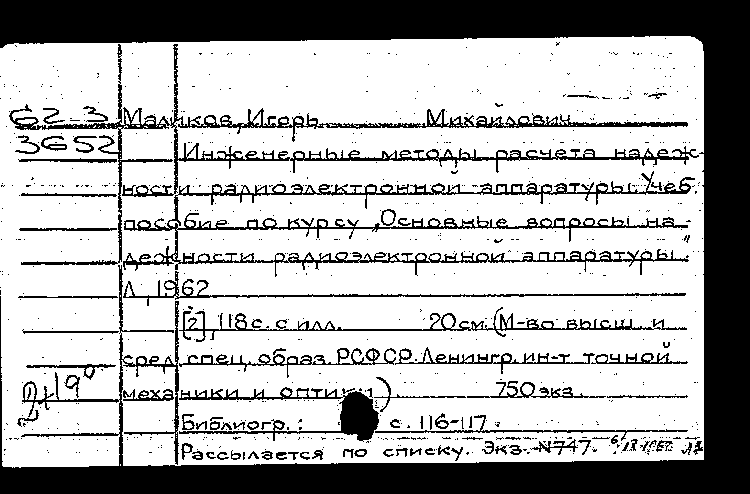 62-3 Маликов, Игорь Михайлович
3652
Инженерные методы расчета надеж-
ности радиоэлектронной аппаратуры. Учеб.
пособие по курсу „Основные вопросы на-
дежности радиоэлектронной аппаратуры".
Л., 1962
[2], 118 с. с илл. 20 см. (М-во высш. и
сред. спец. образ. РСФСР. Ленингр. ин-т точной
механики и оптики). 750 экз.
Библиогр.: с. 116-117.
Рассылается по списку. Экз. N747.